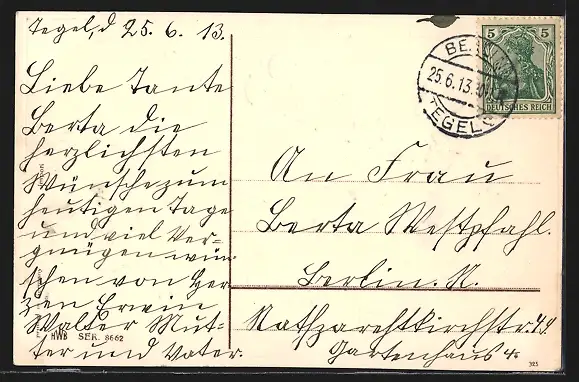 Tegel, d 25. 6. 13.
Liebe Tante
Berta die
herzlichsten
Wünsche zum
heutigen Tage
und viel Ver-
gnügen wün-
schen von Her-
zen Erwin
Walter Mut-
ter und Vater.
HWB SER. 8662
BERLIN
25.6.13.
TEGEL
5 5
DEUTSCHES REICH
An Frau
Berta Westpfahl.
Berlin. N.
Nathzarethkirchstr. 49
Gartenhaus 4.
325